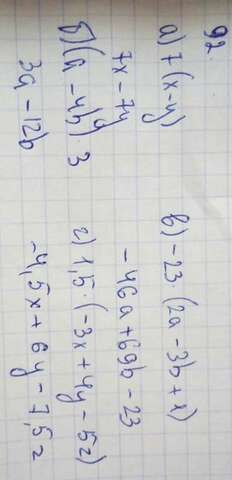 92.
а) 7(x-y)
7x - 7y
б) (a - 4b) · 3
3a - 12b
в) -23 · (2a - 3b + x)
-46a + 69b - 23
г) 1,5 · (-3x + 4y - 5z)
-4,5x + 6y - 7,5z